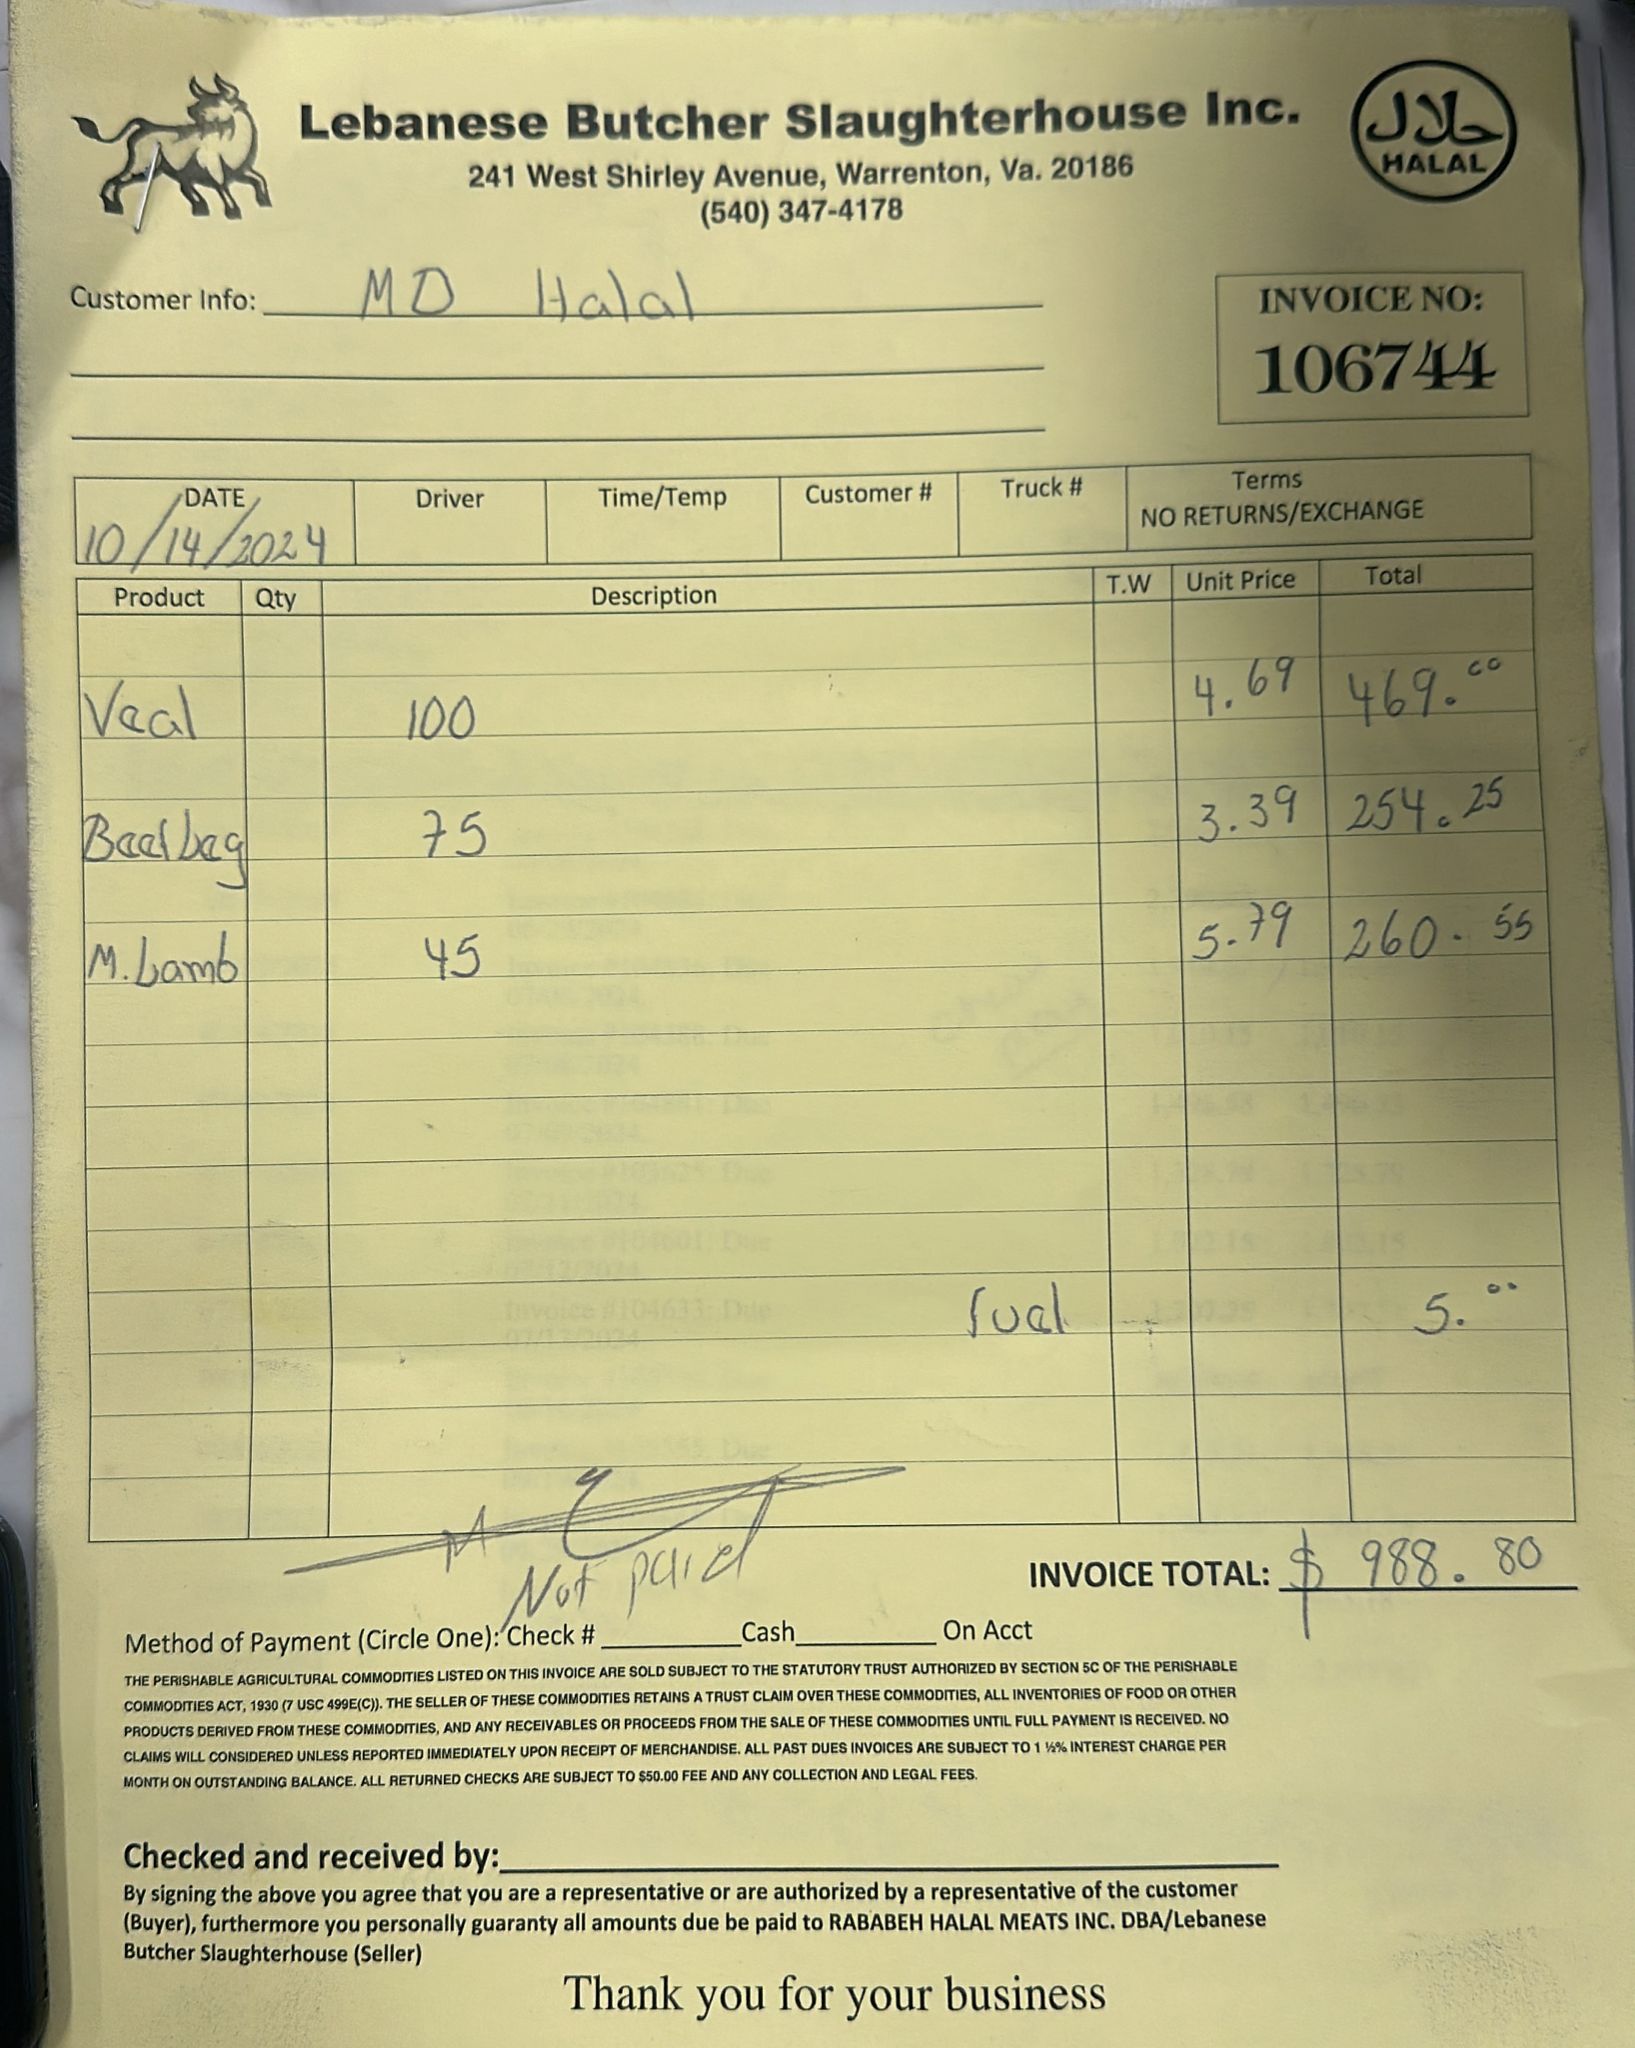 Lebanese Butcher Slaughterhouse Inc.
241 West Shirley Avenue, Warrenton, Va. 20186
(540) 347-4178
حلال
HALAL
Customer Info: MD Halal
INVOICE NO:
106744
DATE Driver Time/Temp Customer # Truck # Terms
10/14/2024 NO RETURNS/EXCHANGE
Product Qty Description T.W Unit Price Total
Veal 100 4.69 469.00
75 3.39 254.25
M. Lamb 45 5.79 260.55
fuel 5.00
Not paid
INVOICE TOTAL: $ 988.80
Method of Payment (Circle One): Check # Cash On Acct
THE PERISHABLE AGRICULTURAL COMMODITIES LISTED ON THIS INVOICE ARE SOLD SUBJECT TO THE STATUTORY TRUST AUTHORIZED BY SECTION 5C OF THE PERISHABLE
COMMODITIES ACT, 1930 (7 USC 499E(C)). THE SELLER OF THESE COMMODITIES RETAINS A TRUST CLAIM OVER THESE COMMODITIES, ALL INVENTORIES OF FOOD OR OTHER
PRODUCTS DERIVED FROM THESE COMMODITIES, AND ANY RECEIVABLES OR PROCEEDS FROM THE SALE OF THESE COMMODITIES UNTIL FULL PAYMENT IS RECEIVED. NO
CLAIMS WILL CONSIDERED UNLESS REPORTED IMMEDIATELY UPON RECEIPT OF MERCHANDISE. ALL PAST DUES INVOICES ARE SUBJECT TO 1 ½% INTEREST CHARGE PER
MONTH ON OUTSTANDING BALANCE. ALL RETURNED CHECKS ARE SUBJECT TO $50.00 FEE AND ANY COLLECTION AND LEGAL FEES.
Checked and received by:
By signing the above you agree that you are a representative or are authorized by a representative of the customer
(Buyer), furthermore you personally guaranty all amounts due be paid to RABABEH HALAL MEATS INC. DBA/Lebanese
Butcher Slaughterhouse (Seller)
Thank you for your business